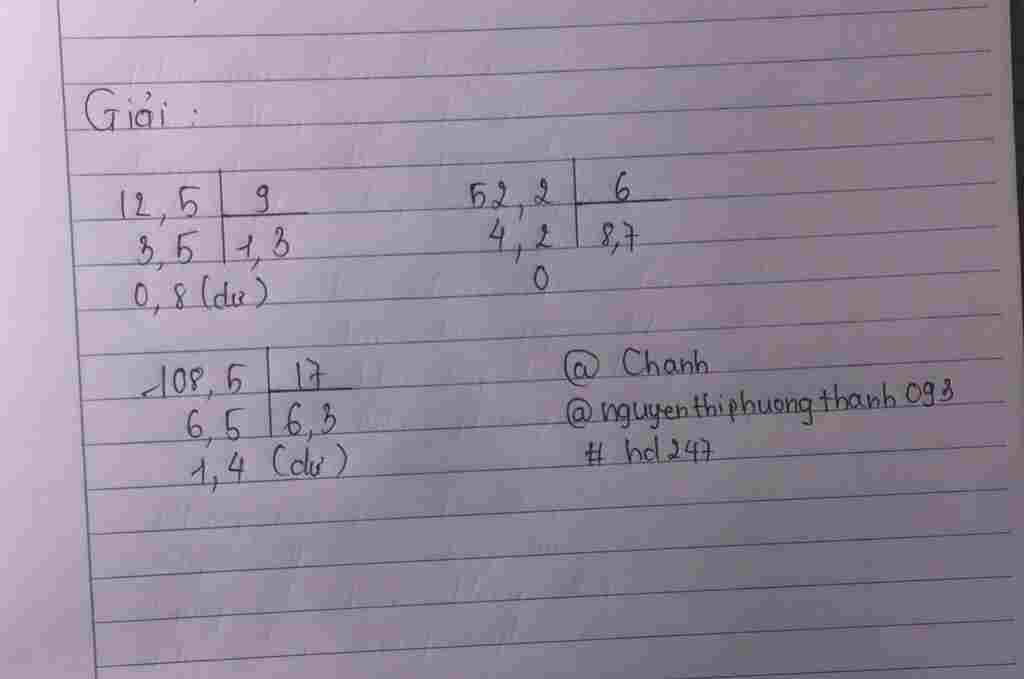 Giải :
12,5 9 52,2 6
3,5 1,3 4,2 8,7
0,8 (dư) 0
108,5 17 @ Chanh
6,5 6,3 @nguyenthiphuongthanh093
1,4 (dư) # hd247